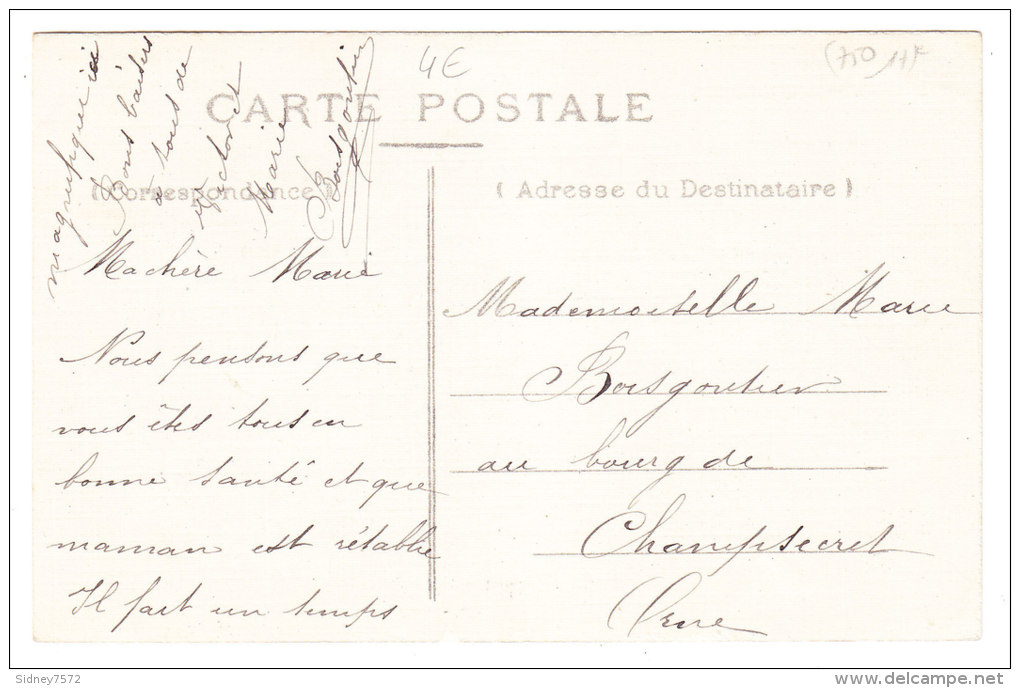 4€
(750 17)
CARTE POSTALE
(Correspondance)
(Adresse du Destinataire)
Machère Marie
Nous pensons que
vous êtes tous en
bonne santé et que
maman est rétablie
Il fait un temps
magnifique ici
Bons baisers
à tous de
Victor et
Marie
Boisgontier
Mademoiselle Marie
Boisgontier
au bourg de
Champsecret
Orne
Sidney7572
www.delcampe.net